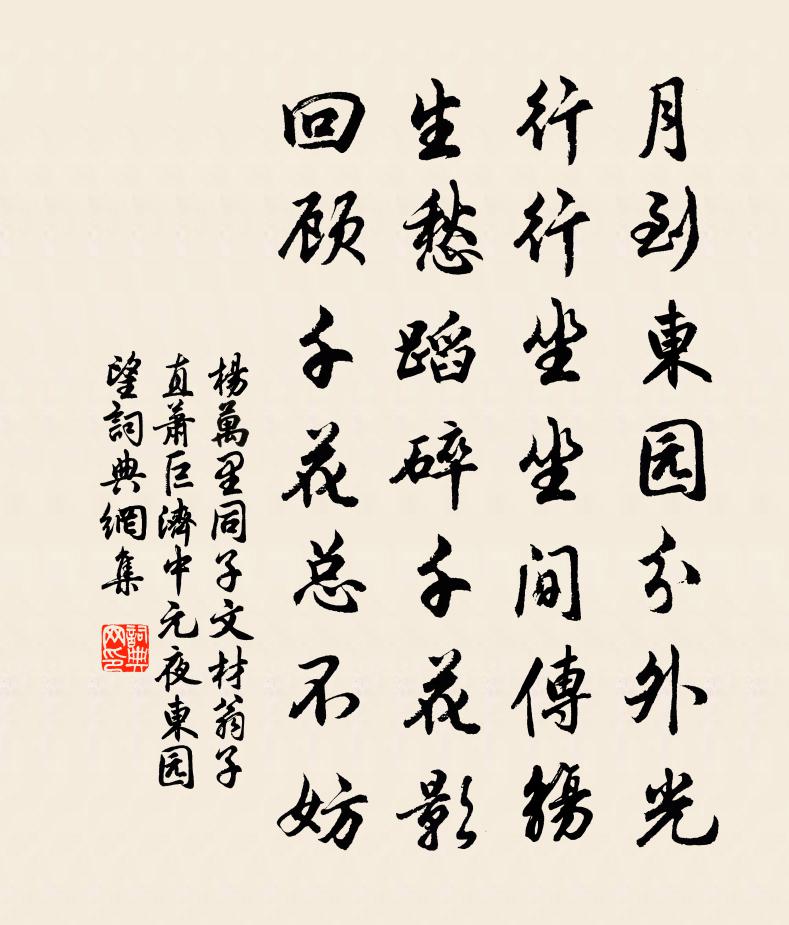 月到東园分外光
行行坐坐间傳觴
生愁蹈碎千花影
回顾千花总不妨
楊萬里同子文材翁子
直萧巨濟中元夜東园
望詞典網集
詞典网印